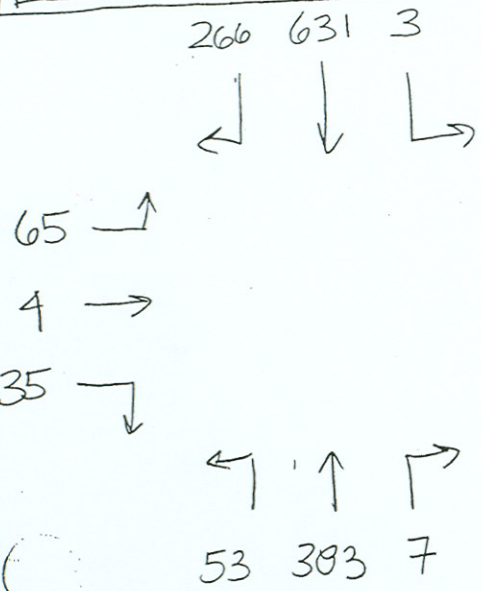 266 631 3
65
4
35
53 383 7